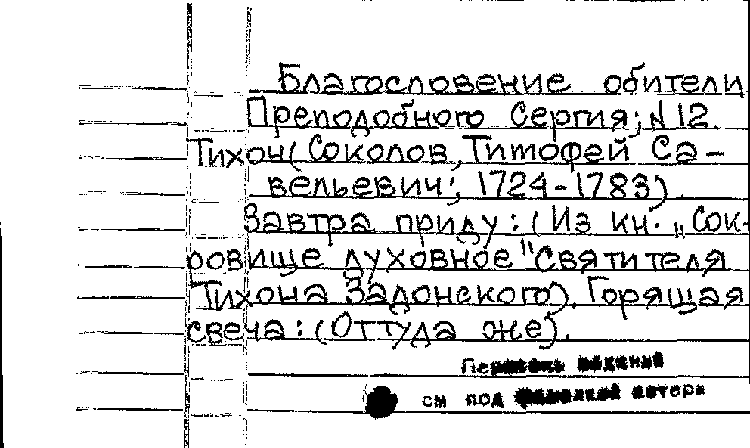 Благословение обители
Преподобного Сергия; N 12.
Тихон(Соколов,Тимофей Са-
вельевич; 1724-1783).
Завтра приду: (Из кн. „Сок-
ровище духовное"святителя
Тихона Задонского). Горящая
свеча: (Оттуда же).
см под автора